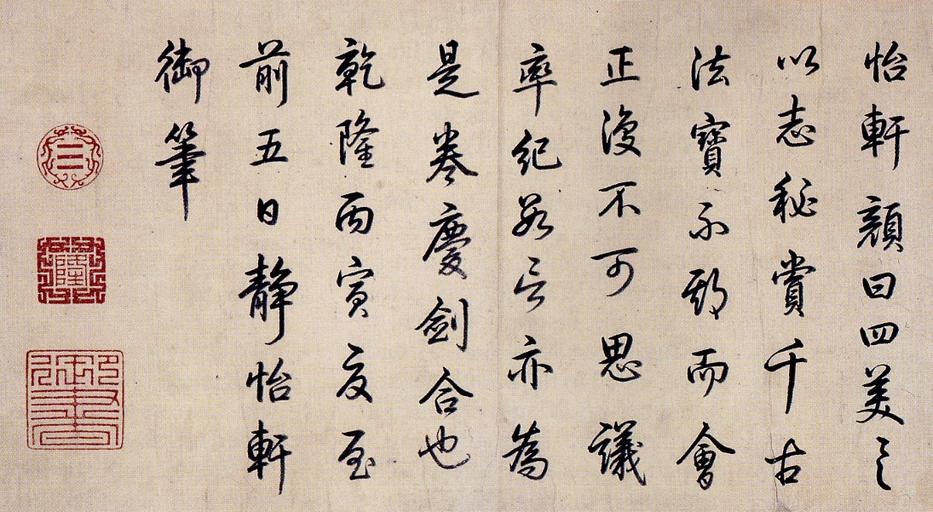 怡軒顏曰四美具
以志秘賞千古
法寶不期而會
正復不可思議
率紀數言亦為
是卷慶劍合也
乾隆丙寅夏至
前五日靜怡軒
御筆
乾隆